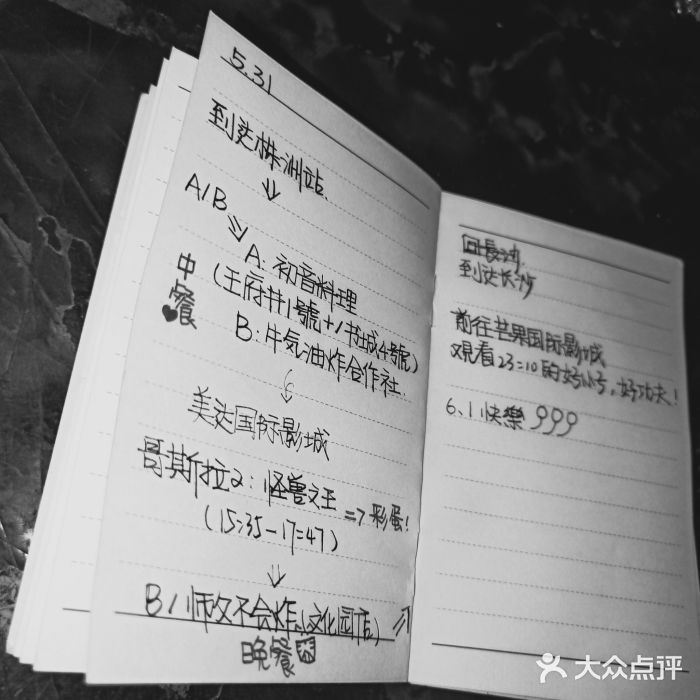 5.31
到达株洲站
A/B
A. 初音料理
(王府井1號+1书城4號)
中餐
B. 牛気油炸合作社
美达国际影城
哥斯拉2:怪獸之王
(15:35-17:47)
=>彩蛋!
B/师改不会炸(文化园店)
晚餐
回長沙
到达长沙
前往芒果国际影城
观看23:10的好小子,好功夫!
6.1快樂 999
大众点评